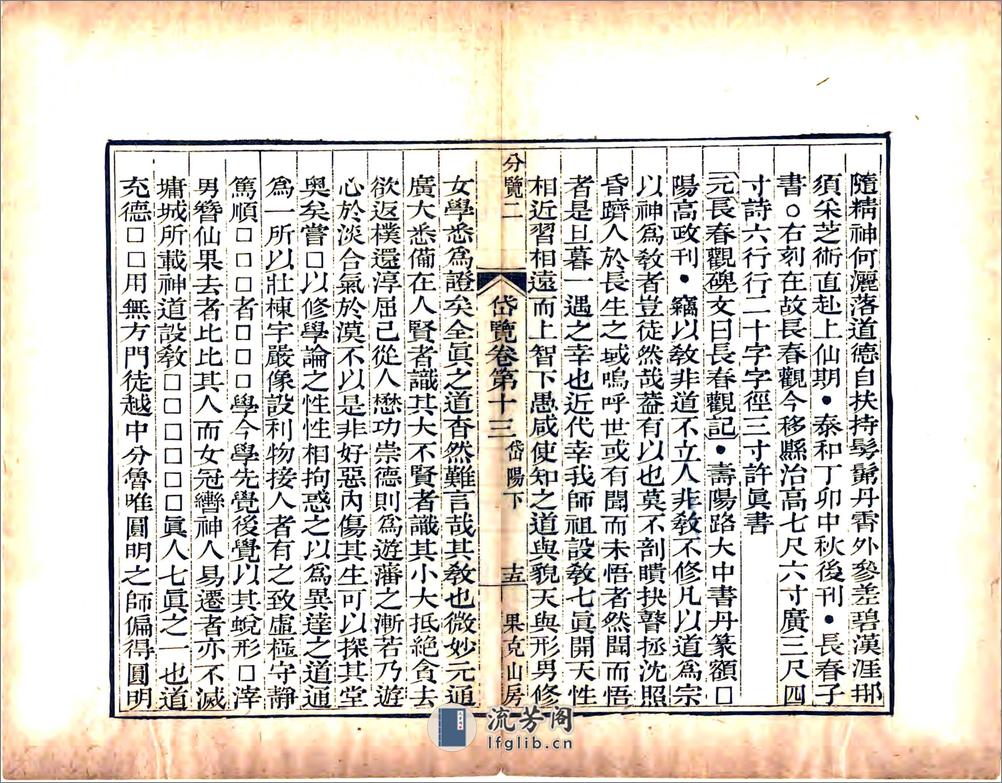 隨精神何灑落道德自扶持髣髴丹霄外參差碧漢涯挪
須采芝術直赴上仙期●泰和丁卯中秋後刊●長春子
書○右刻在故長春觀今移縣治高七尺六寸廣三尺四
寸詩六行行二十字字徑三寸許眞書
元長春觀碑文曰長春觀記●壽陽路大中書丹篆額□
陽高政刊●竊以教非道不立人非教不修凡以道爲宗
以神爲教者豈徒然哉葢有以也莫不剖瞶抉瞽拯沈照
昏躋人於長生之域嗚呼世或有聞而未悟者然聞而悟
者是旦暮一遇之幸也近代幸我師祖設教七眞開天性
相近習相遠而上智下愚咸使知之道與貌天與形男修
分覽二
岱覽卷第十三
岱陽下
十五
果克山房
女學悉爲證矣全眞之道杳然難言哉其教也微妙元通
廣大悉備在人賢者識其大不賢者識其小大抵絕貪去
欲返樸還淳屈己從人懋功崇德則爲遊藩之漸若乃遊
心於淡合氣於漠不以是非好惡內傷其生可以探其堂
奧矣嘗□以修學論之性性相拘惑之以爲異達之道通
爲一所以壯棟宇嚴像設利物接人者有之致虛極守靜
篤順□□□者□□□學今學先覺後覺以其蛻形□滓
男簪仙果去者比比其人而女冠轡神人易遷者亦不滅
墉城所載神道設教□□□□□眞人七眞之一也道
充德□□用無方門徒越中分魯唯圓明之師偏得圓明
流芳阁
lfglib.cn